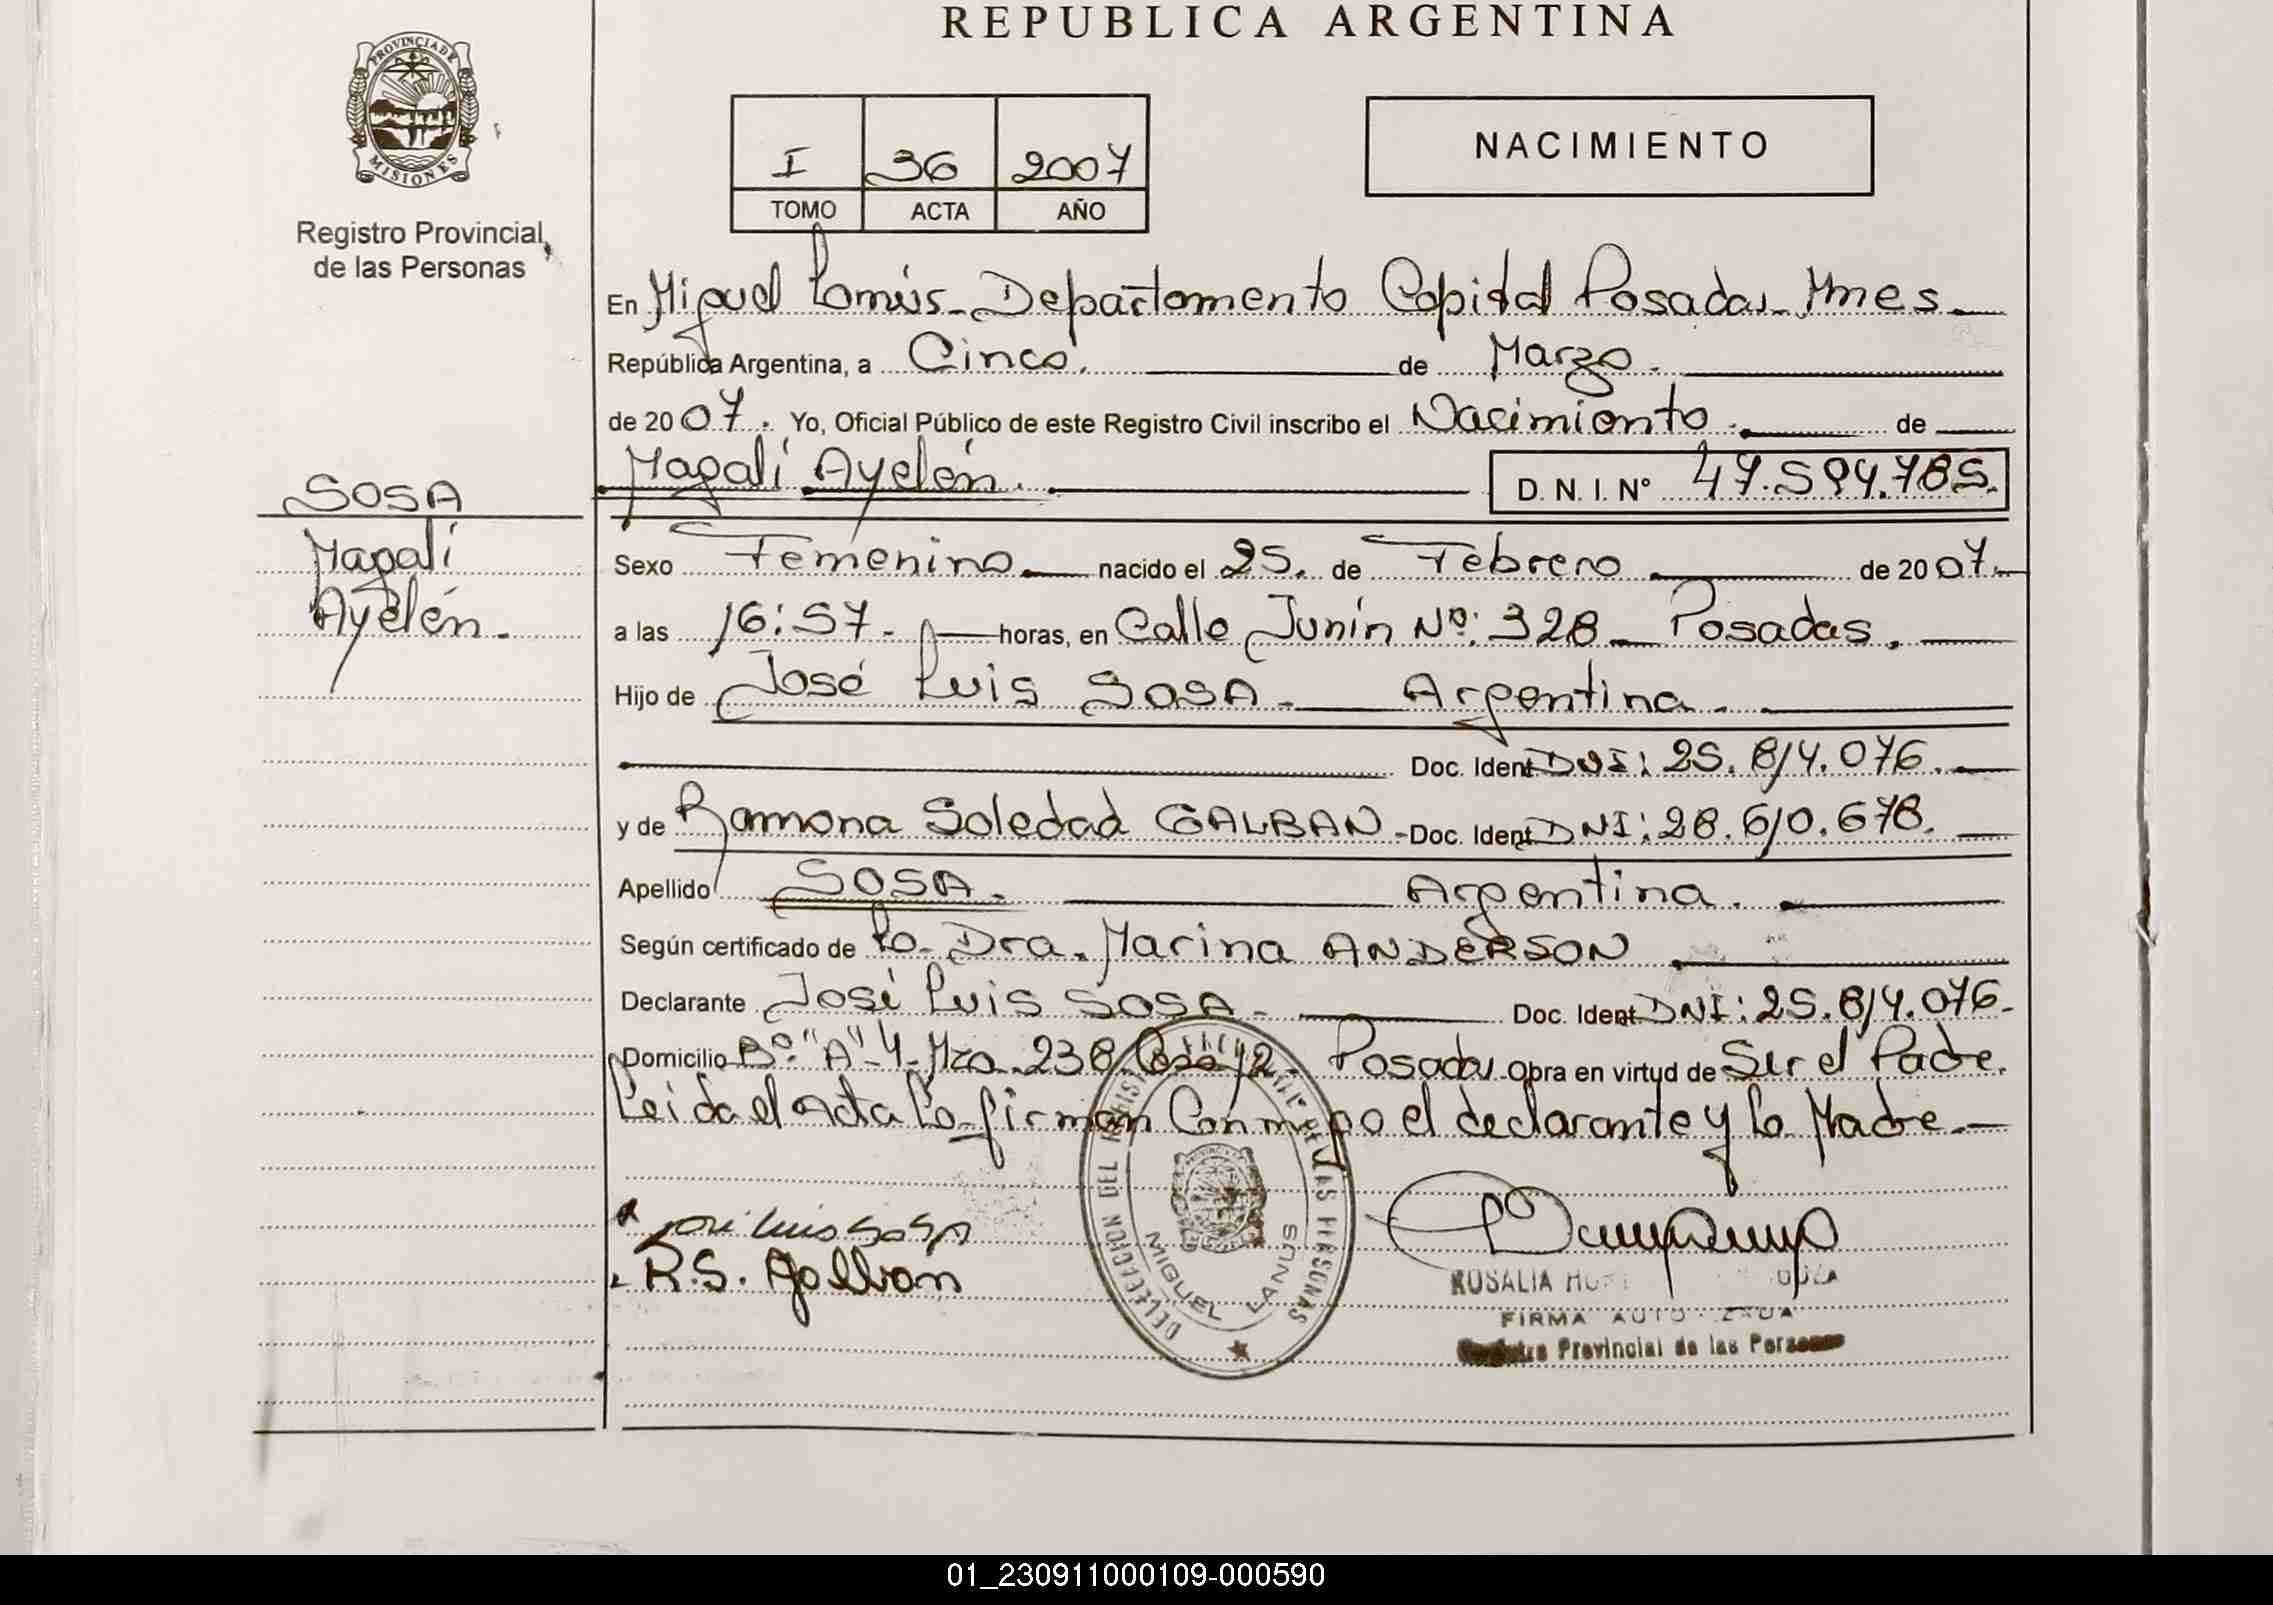 REPUBLICA ARGENTINA
PROVINCIA DE
MISIONES
Registro Provincial
de las Personas
I 36 2007
TOMO ACTA AÑO
NACIMIENTO
En Miguel Lanús - Departamento Capital Posadas - Mnes.
República Argentina, a Cinco. de Marzo.
de 2007. Yo, Oficial Público de este Registro Civil inscribo el Nacimiento. de
Magalí Ayelén. D. N. I. Nº 47.594.785.
SOSA
Magalí
Ayelén.
Sexo Femenino nacido el 25. de Febrero de 2007.
a las 16:57. horas, en Calle Junín Nº: 328 - Posadas.
Hijo de José Luis SOSA. Argentina.
Doc. Ident. DNI: 25.814.076.
y de Ramona Soledad GALBAN - Doc. Ident. DNI: 28.610.678.
Apellido SOSA. Argentina.
Según certificado de La Dra. Marina ANDERSON
Declarante José Luis SOSA. Doc. Ident. DNI: 25.814.076.
Domicilio Bº. "A"-4- Mza. 238 Casa 12 - Posadas Obra en virtud de Ser el Padre.
Leida el Acta la firman Conmigo el declarante y la Madre.
José Luis SOSA
R.S. Galban
DELEGACION DEL REGISTRO PROVINCIAL DE LAS PERSONAS
PROVINCIA DE
MIGUEL LANUS
ROSALIA
FIRMA AUTORIZADA
Registro Provincial de las Personas
01_230911000109-000590